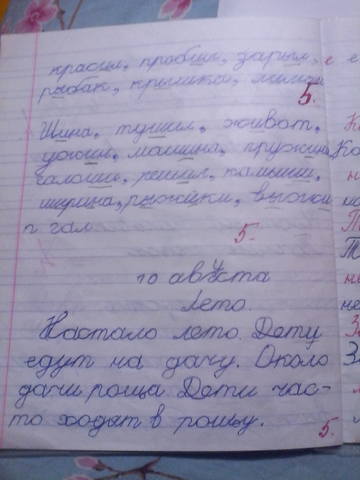 красил, пробил, зарыл, 
рыбак, крышка, лимон
5.
Шина, тушил, живот,
ужин, машина, пружина
галоши, решил, камыши,
ширина, рыжики,
5.
10 августа
Лето.
Настало лето. Дети
едут на дачу. Около
дачи роща. Дети час-
то ходят в рощу.
5.